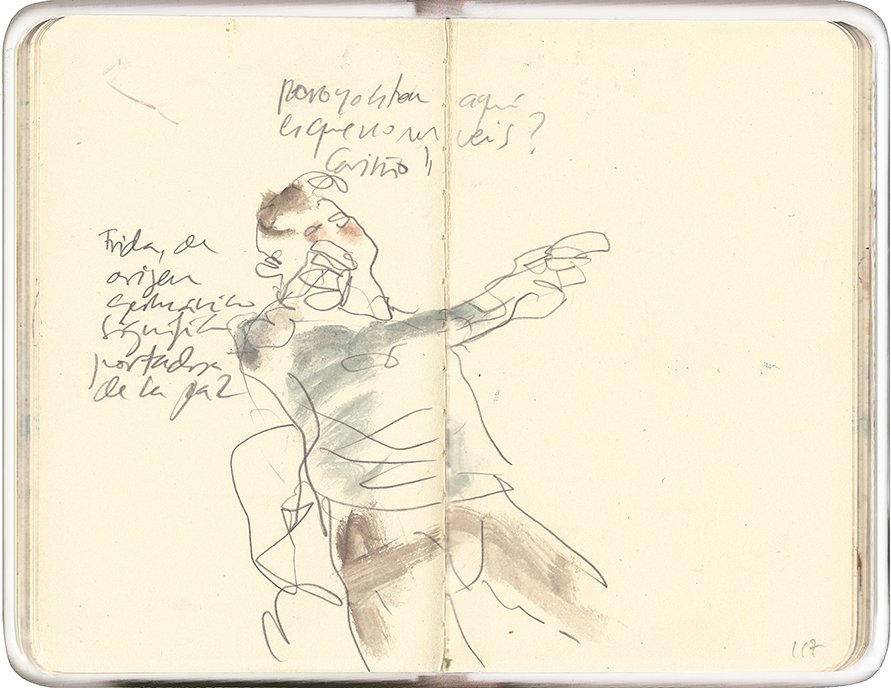 pero yo estoy aquí
es que no me veis?
Cariño!!
Frida, de
origen
germánico
significa
portadora
de la paz
117